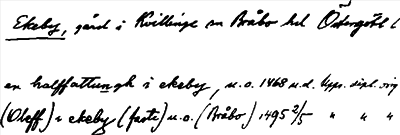 Ekeby, gård i Kvillinge sn Bråbo hd Östergötl l
en halffattungh i ekeby, u.o. 1468 u.d. Upps. dipl. orig
(Oleff) i ekeby (faste) u.o. (Bråbo) 1495 2/5 " " "